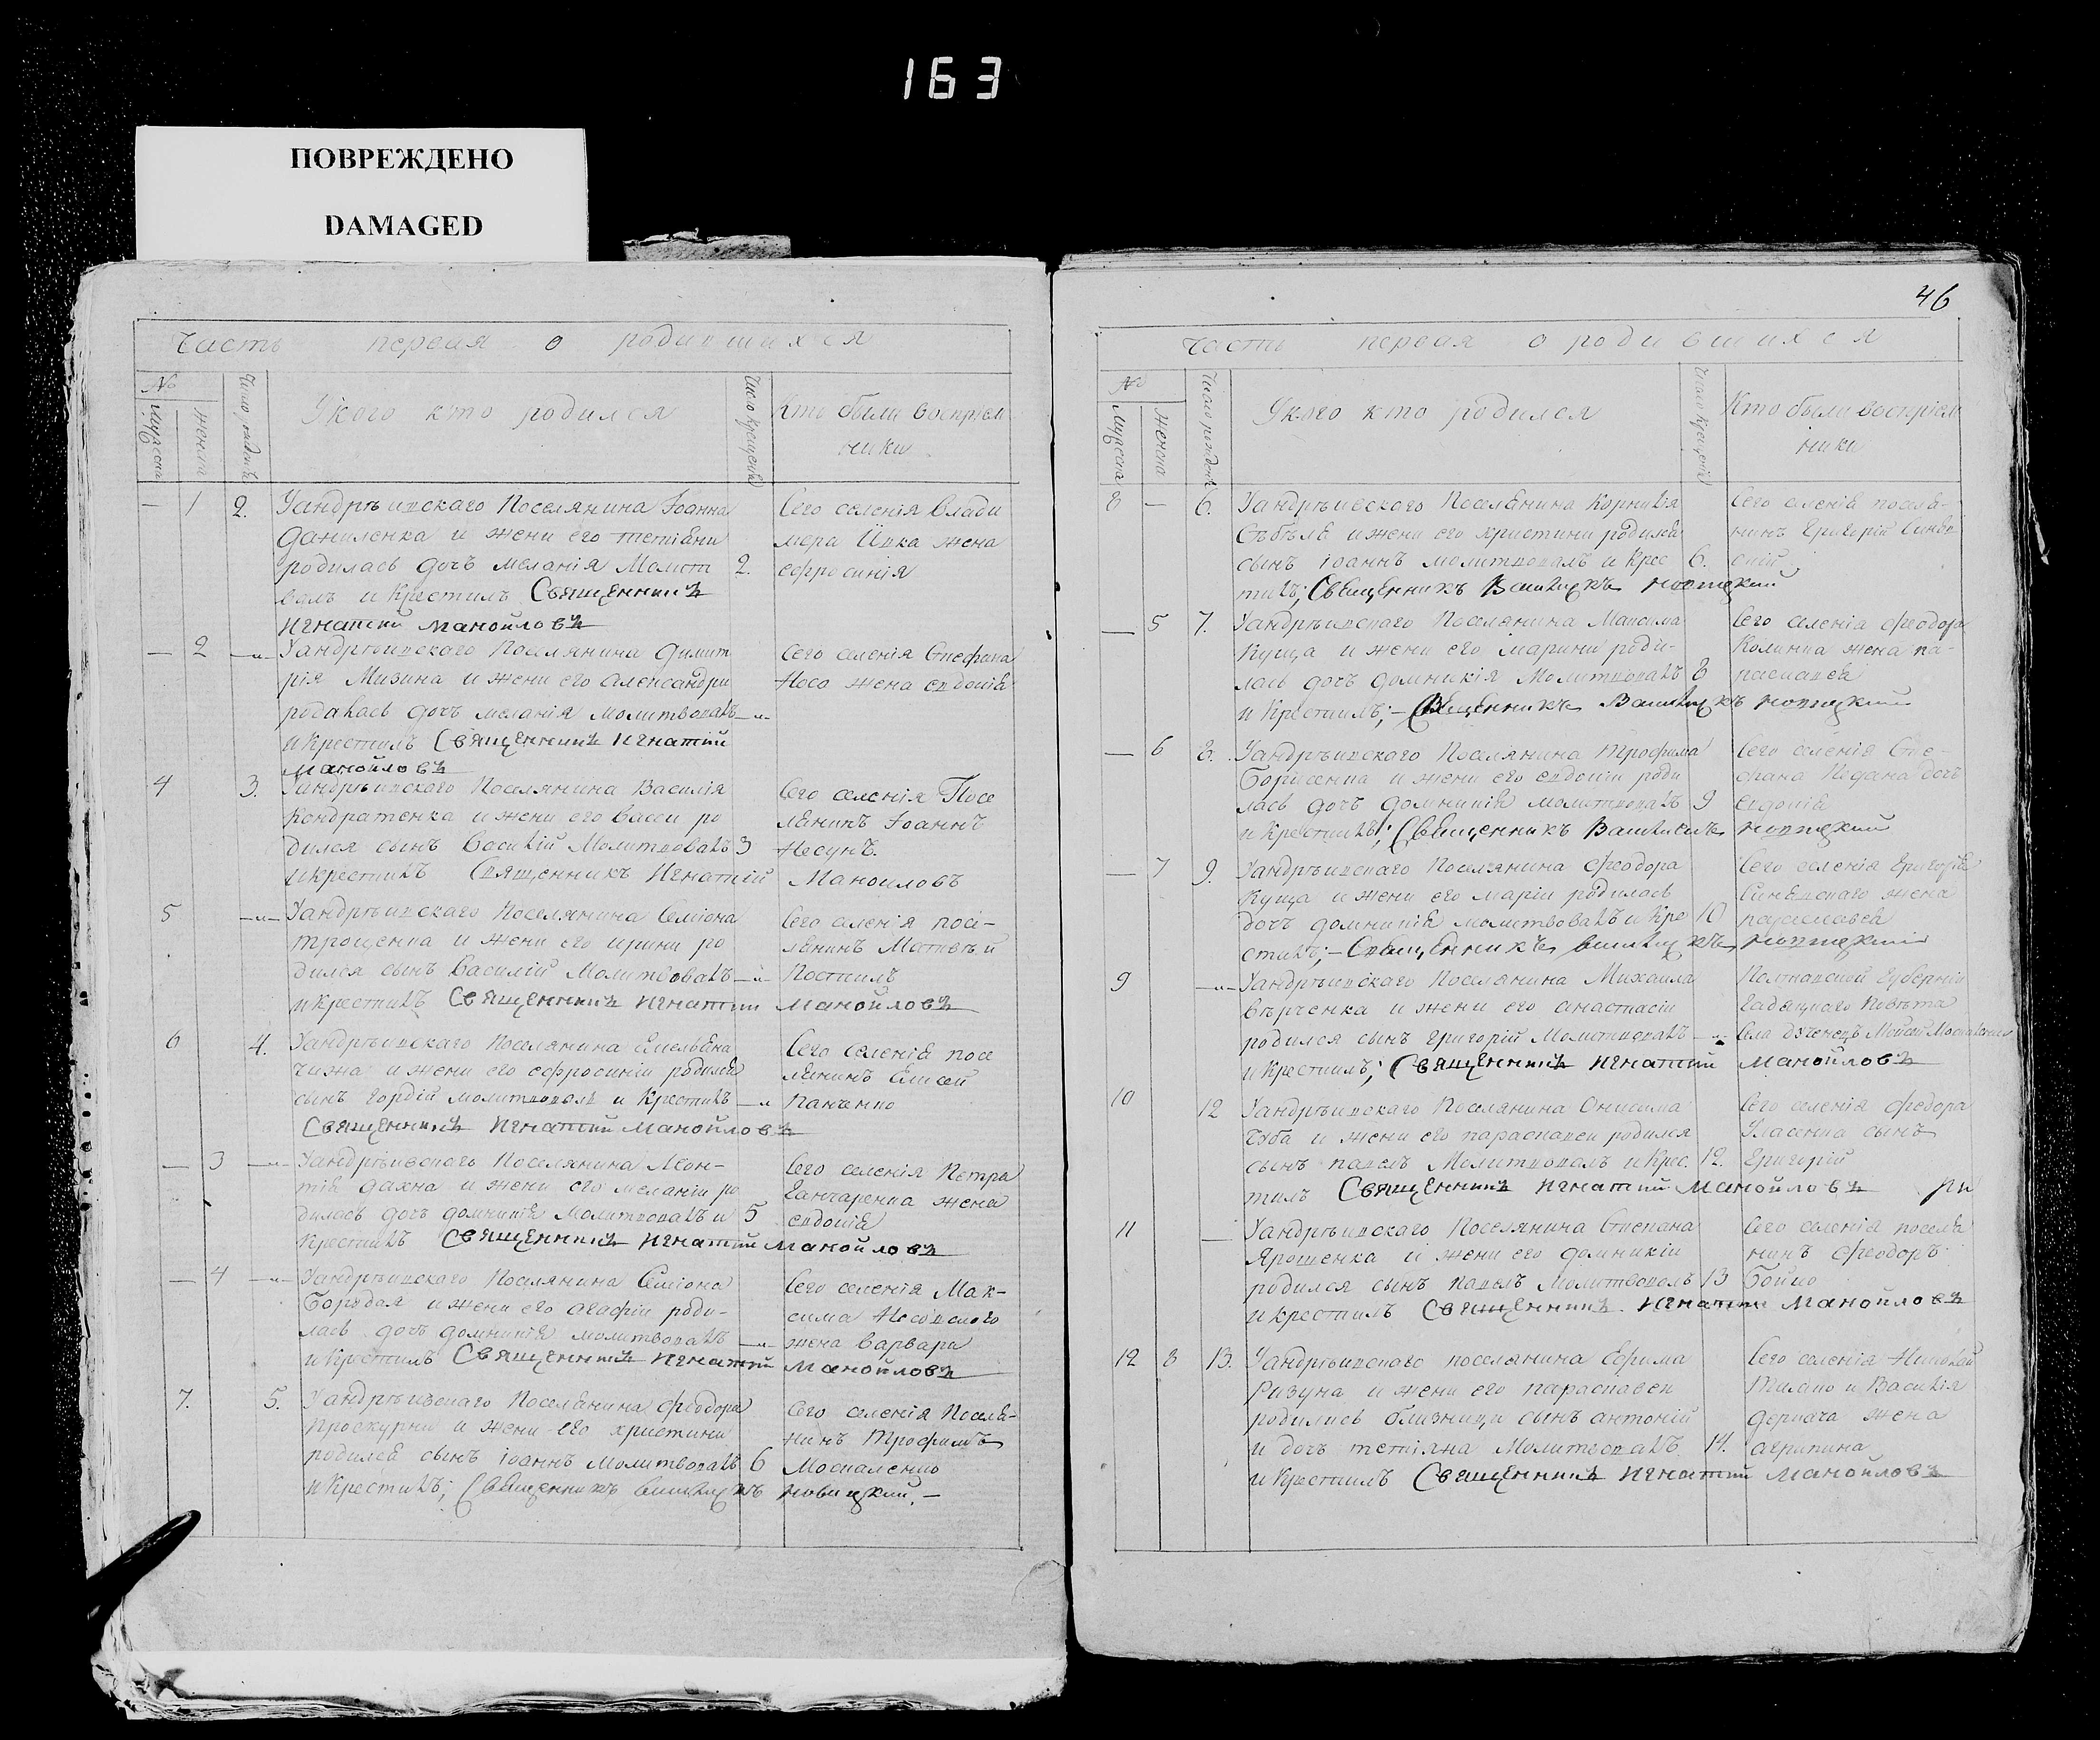 163
ПОВРЕЖДЕНО
DAMAGED
Часть первая о родившихся
№
Мужеска
Женска
Число рожденія
У кого кто родился
Число крещенія
Кто были воспріем
ники
— 1 2. Уандрѣивскаго Поселянина Іоанна
Даниленка и жени его тетіяни
родилась дочъ меланія Молитв 2.
валъ и Крестилъ Священникъ
Игнатій Манойловъ
Сего селенія Влади
мера жена
ефросинія
— 2 —„— Уандрѣивскаго Поселянина Димит
рія Мизина и жени его александри
родалась дочъ меланія молитвовалъ —„—
и Крестилъ Священникъ Игнатій
Манойловъ
Сего селенія Стефана
Носо жена евдокія
4 3. Уандрѣивскаго Поселянина Василія
Кондратенка и жени его васси ро
дился сынъ Василій Молитвовалъ 3
и крестилъ Священникъ Игнатій Маноиловъ
Сего селенія Посе
лянинъ Іоаннъ
Несунъ.
5 —„— Уандрѣивскаго Поселянина Семіона
троценка и жени его ирини ро
дился сынъ Василій Молитвовалъ —„—
и крестилъ Священникъ Игнатій Манойловъ
Сего селенія посе-
лянинъ Матвѣй
Костилъ
6 4. Уандрѣивскаго Поселянина Емельяна
Чижа и жени его ефросиніи родился
сынъ Гордій молитвовалъ и Крестилъ —„
Священникъ Игнатій Манойловъ
Сего селенія посе
лянинъ Елисей
Панченко
— 3 —„— Уандрѣивскаго Поселянина Леон-
тія дахна и жени его меланіи ро
дилась дочъ домникія Молитвовалъ и 5
Крестилъ Священникъ Игнатій Манойловъ
Сего селенія Петра
Ганчаренка жена
евдокія
— 4 —„— Уандрѣивскаго Поселянина Семіона
Бородая и жени его агафіи роди-
лась дочъ домникія молитвовалъ —„—
и Крестилъ Священникъ Игнатій Манойловъ
Сего селенія Мак-
сима Несовского
жена варвара
7. 5. Уандрѣивскаго Поселянина Феодора
Проскурни и жени его христини
родился сынъ іоаннъ Молитвовалъ 6
и Крестилъ; Священникъ Новицкий. —
Сего селенія Поселя-
нинъ Трофимъ
Москаленко
46
Часть первая о родившихся
№
Мужеска
Женска
Число рожденія
У кого кто родился
Число крещенія
Кто были воспріем
ники
8 — 6. Уандрѣивскаго Поселянина Корнилія
и жени его христини родился
сынъ іоаннъ молитвовалъ и Крес 6.
тилъ; Священникъ Новицкий
Сего селенія поселя-
нинъ Григорій Синяв
скій
— 5 7. Уандрѣивскаго Поселянина Максима
Куща и жени его марини роди-
лась дочъ домникія Молитвовалъ 8
и Крестилъ; — Священникъ Новицкий
Сего селенія Феодора
Колинка жена па-
раскавея
— 6 8. Уандрѣивскаго Поселянина Трофима
Борисенка и жени его евдокіи роди
лась дочъ домникія молитвовалъ 9
и Крестилъ; Священникъ Новицкий
Сего селенія Сте-
фана дочъ
евдокія
— 7 9. Уандрѣивскаго Поселянина Феодора
Куща и жени его маріи родилась
дочъ домникія молитвовалъ и Кре 10
стилъ; — Священникъ Новицкий
Сего селенія Григорія
Синявскаго жена
параскавея
9 —„— Уандрѣивскаго Поселянина Михаила
вѣрченка и жени его анастасіи
родился сынъ Григорій Молитвовалъ —„—
и Крестилъ; Священникъ Игнатій Манойловъ
Полтавской Губерніи
Гадяцкаго Повѣта
Села
10 12 Уандрѣивскаго Поселянина Онисима
Чуба и жени его параскавеи родился
сынъ павелъ Молитвовалъ и Крес. 12.
тилъ Священникъ Игнатій Манойловъ
Сего селенія Феодора
Уласенка сынъ
Григорій
11 — Уандрѣивскаго Поселянина Степана
Ярошенка и жени его домникіи
родился сынъ павелъ Молитвовалъ 13
и крестилъ Священникъ Игнатій Манойловъ
Сего селенія поселя
нинъ Феодоръ
Бойко
12 8 13. Уандрѣивскаго поселянина Ефима
Ризуна и жени его параскавеи
родились близници сынъ антоній
и дочъ тетіяна Молитвовалъ 14.
и Крестилъ Священникъ Игнатій Манойловъ
Сего селенія Николай
и Василія
деркача жена
агрипина